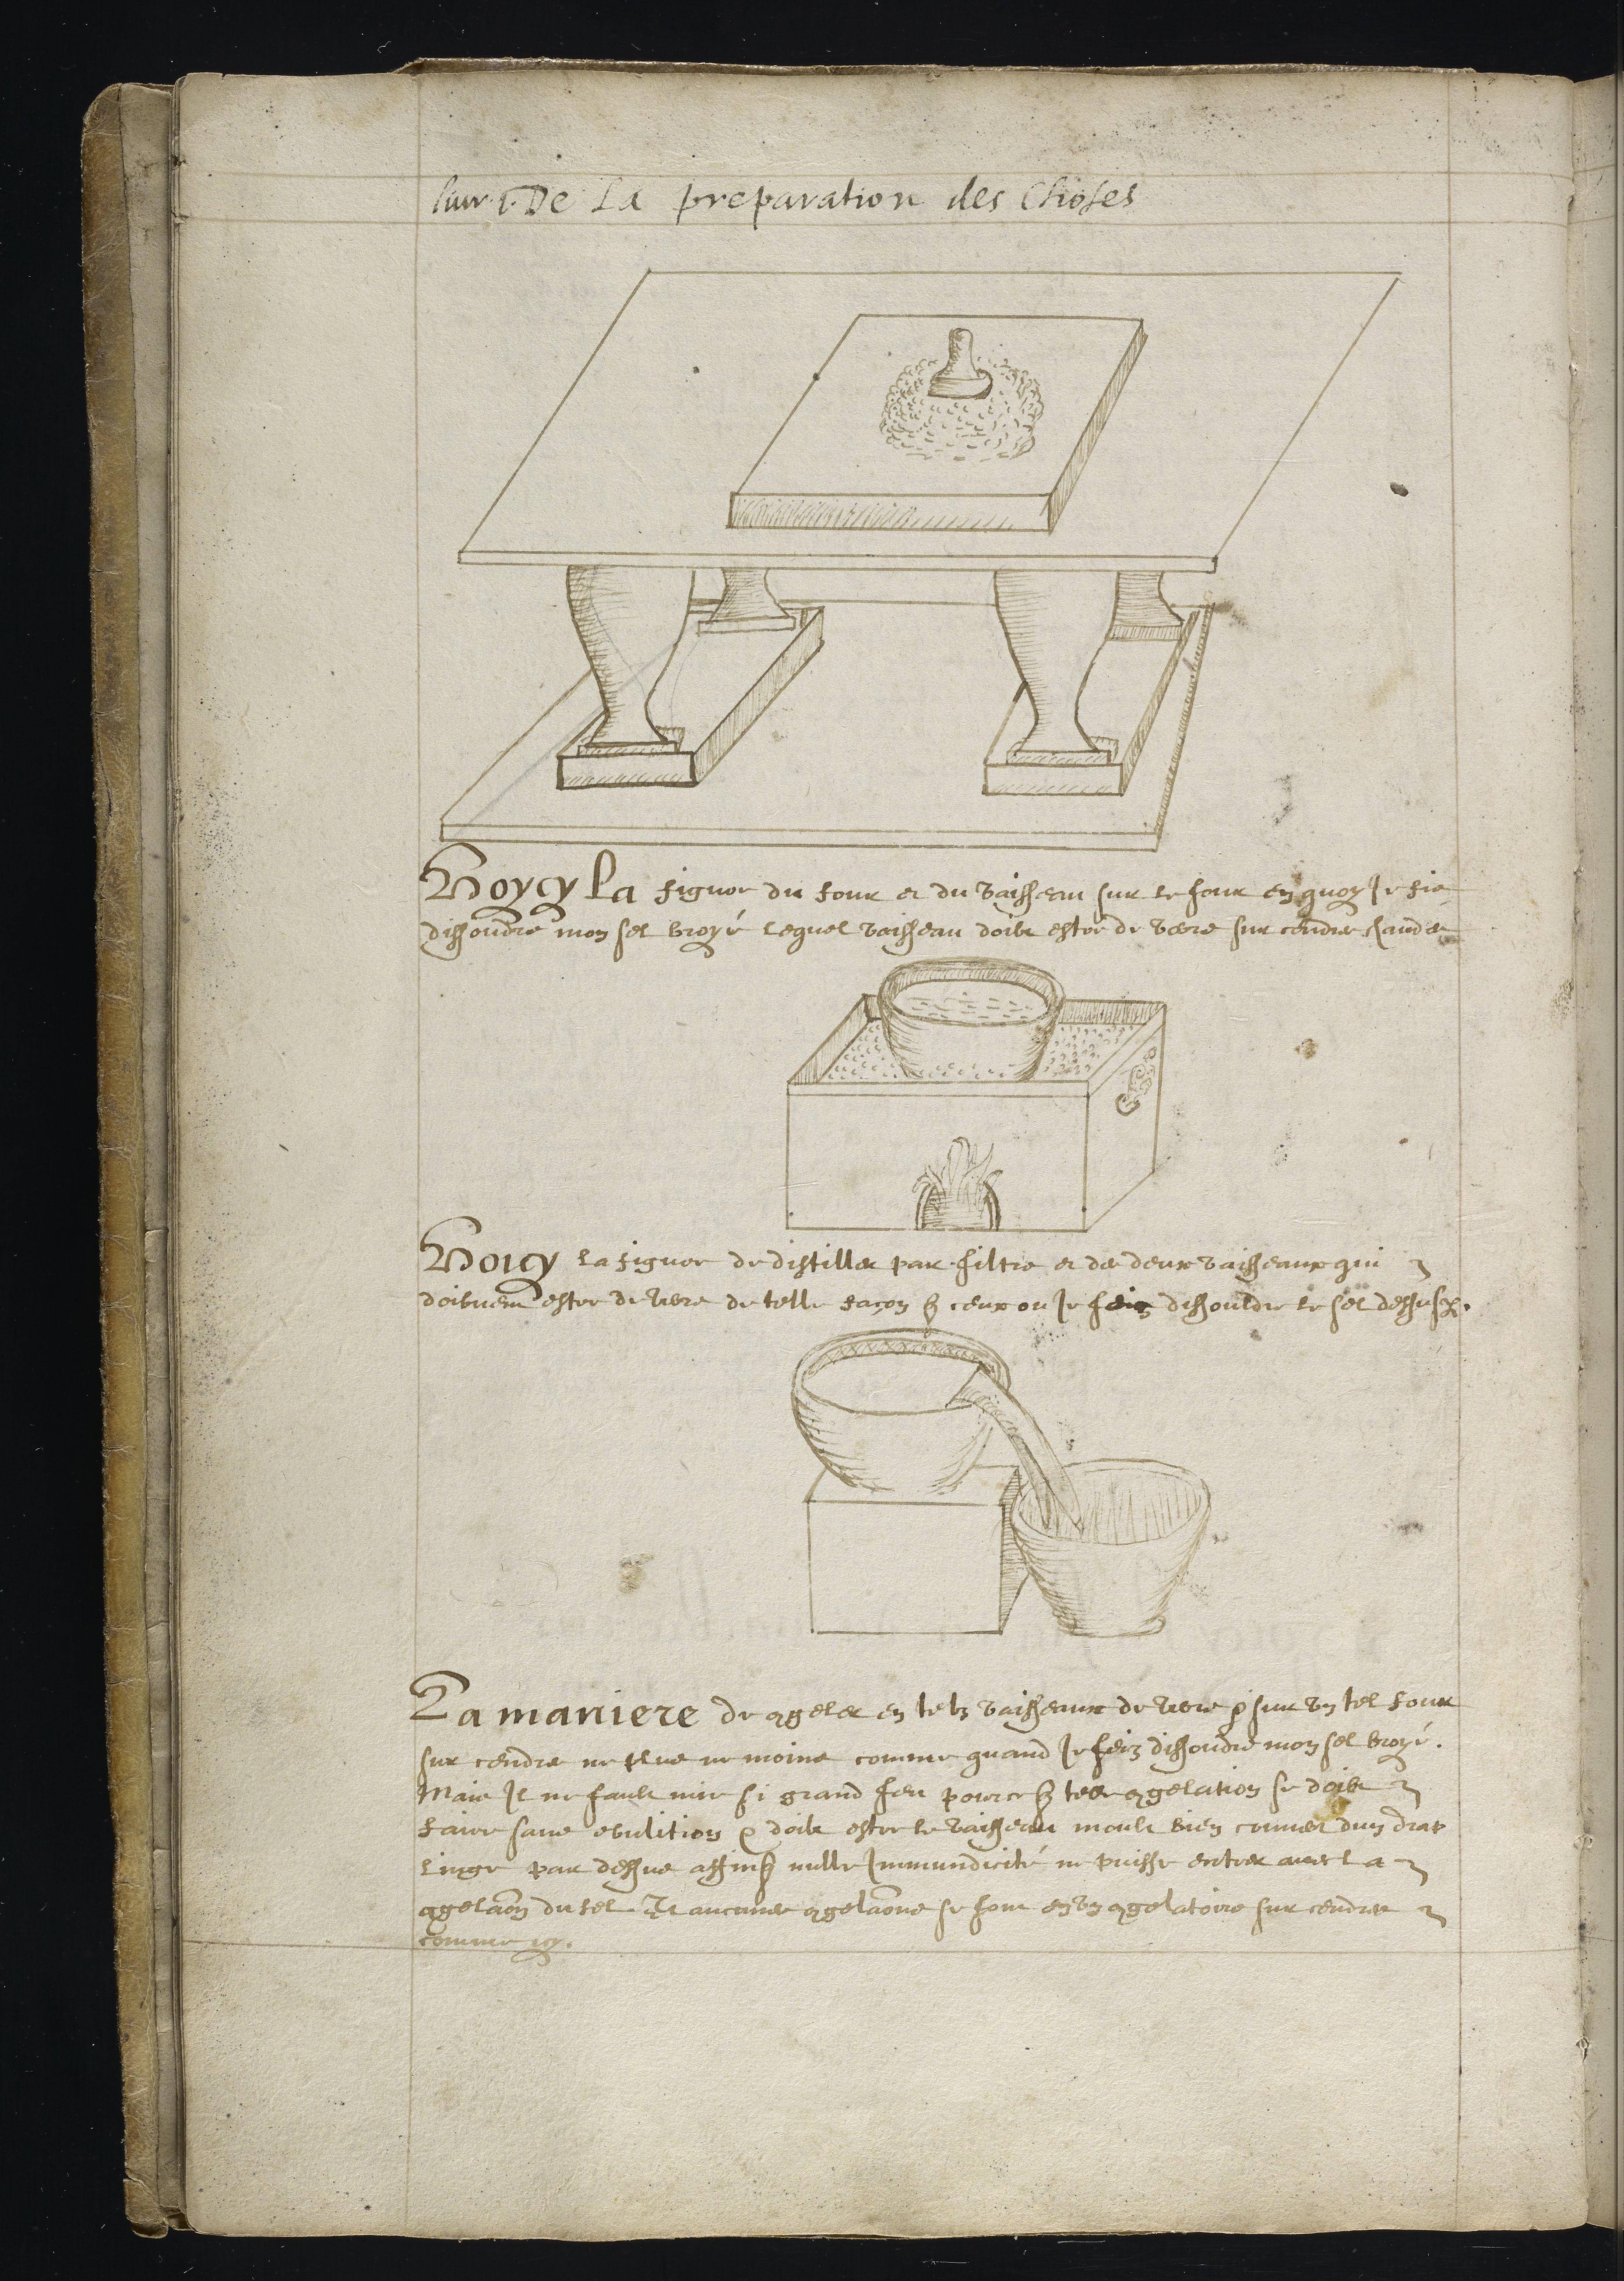 livr. 1. De La preparation des Choses
Voycy La figure du four et du vaisseau sur le four en quoy Je fis
dissoudre mon sel broyé lequel vaisseau doibt estre de verre sur cendres chaudes
Voicy la figure de distiller par filtre et des deux vaisseaux qui
doibuent estre de verre de telle façon q̃ ceux ou Je feis dissouldre le sel dessusd.
La maniere de ꝯgeler en telz vaisseaux de verre & sur vn tel four
sur cendres ne plus ne moins comme quand Je feiz dissoudre mon sel broyé.
Mais Il ne fault mie si grand feu pource q̃ telle ꝯgelation se doibt
faire sans ebulition & doibt estre le vaisseau moult bien couuert dun drap
linge par dessus affinq̃ nulle Immundicité ne puisse entrer auec la
ꝯgelãon du sel. Et aucunes ꝯgelãons se font en vn ꝯgelatoire sur cendres
comme icy.